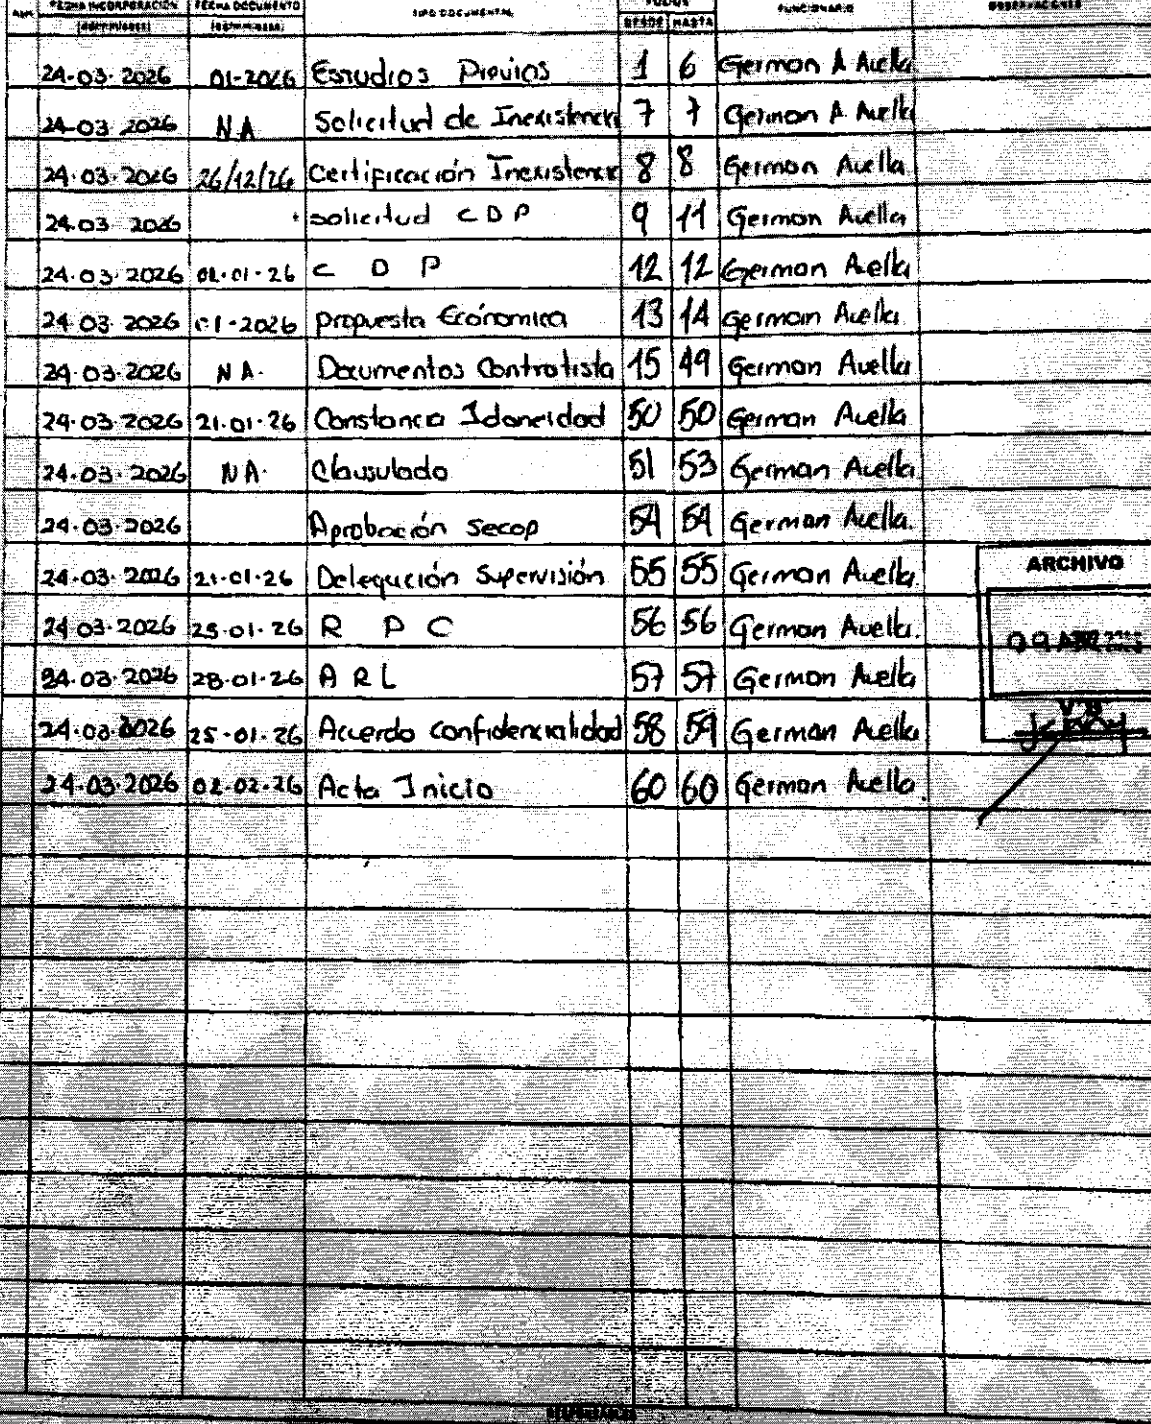 FECHA INCORPORACIÓN FECHA DOCUMENTO TIPO DOCUMENTAL FOLIOS FUNCIONARIO OBSERVACIONES
DESDE HASTA
24-03-2026 01-2026 Estudios Previos 1 6 German A Avella
24-03-2026 NA Solicitud de Inexistencia 7 7 German A Avella
24-03-2026 26/12/26 Certificación Inexistencia 8 8 German Avella
24-03-2026 solicitud CDP 9 11 German Avella
24-03-2026 02-01-26 C D P 12 12 German Avella
24-03-2026 01-2026 propuesta Económica 13 14 German Avella
24-03-2026 NA. Documentos Contratista 15 49 German Avella
24-03-2026 21-01-26 Constancia Idoneidad 50 50 German Avella
24-03-2026 NA. Clausulado 51 53 German Avella
24-03-2026 Aprobación secop 54 54 German Avella.
24-03-2026 21-01-26 Delegación Supervisión 55 55 German Avella
24-03-2026 25-01-26 R P C 56 56 German Avella.
24-03-2026 28-01-26 A R L 57 57 German Avella
24-03-2026 25-01-26 Acuerdo confidencialidad 58 59 German Avella
24-03-2026 02-02-26 Acta Inicio 60 60 German Avella.
ARCHIVO